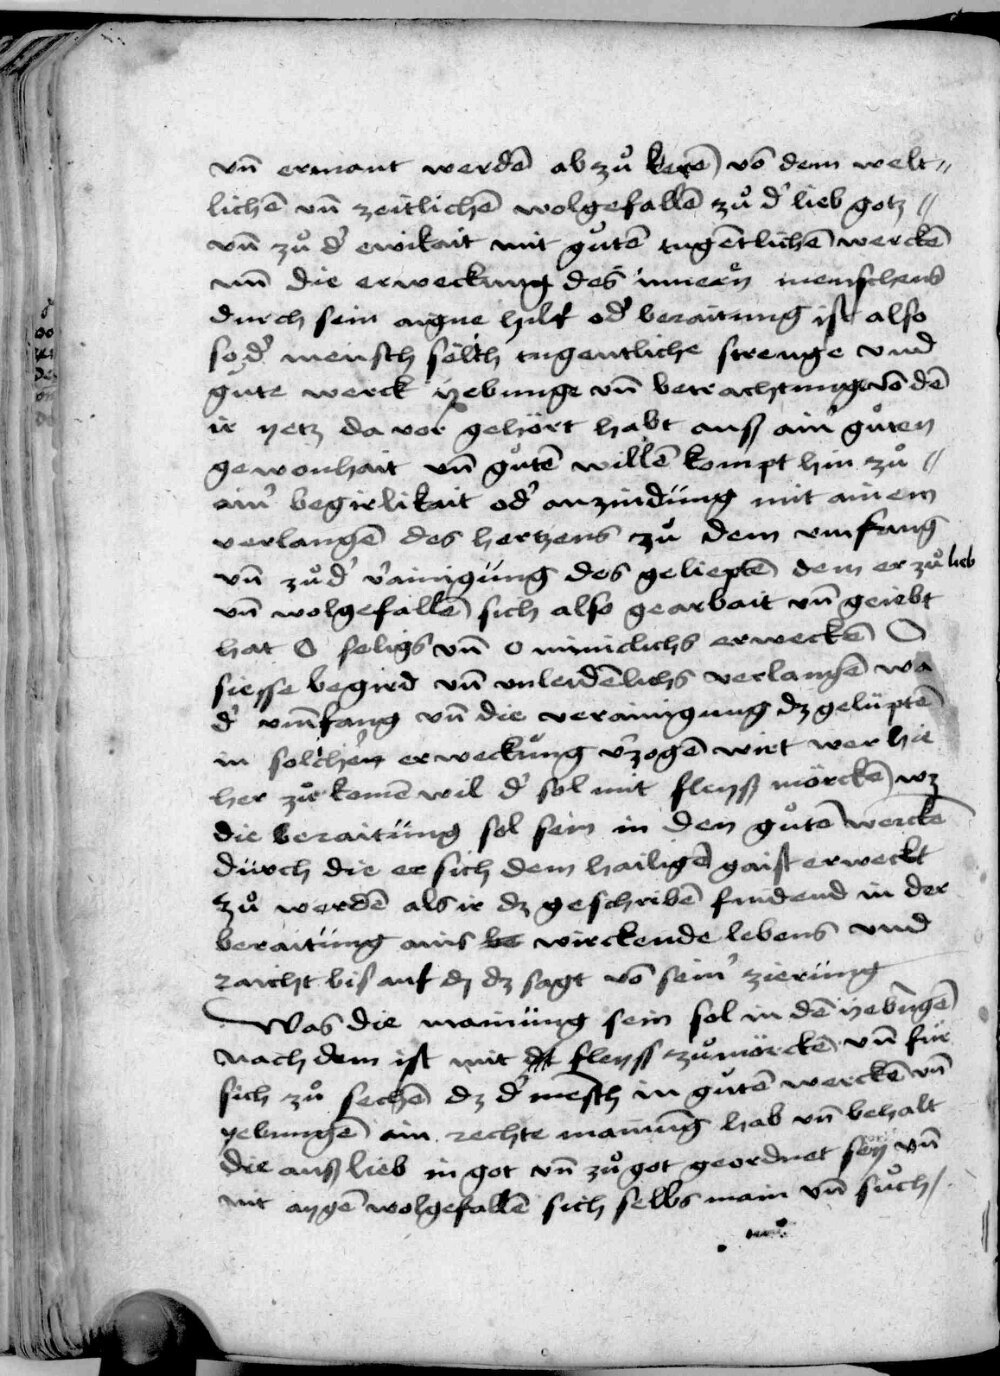 vn̄ ermant werdē ab zů kerē vō dem welt〃
lichē vn̄ zeitlichē wolgefallē zů d' lieb gotz //
vn̄ zů d' ewikait mit gůtē tugētlichē werckē
vnd die erweckung des innern menschens
durch sein aigne hilf od' beraitung ist also
so d' mensch sölch tugentliche strenge vnd
gůte werck yebunge vn̄ betrachtunge vō dē
ir yetz da vor gehört habt auß ain' gůten
gewonhait vn̄ gůtē willē kompt hin zů //
ain' begirlikait od' anzindüng mit ainem
verlangē des hertzens zů dem vmfang
vn̄ zů d' v'ainigüng des geliepte dem er zů lieb
vn̄ wolgefallē sich also gearbait vn̄ geiebt
hat O seligs vn̄ o minnclichs erweckē O
siesse begird vn̄ vnleidēlichs verlangē wa
d' vmfang vn̄ die verainigung dz gelüptē
in solchen erweckung v'zogē wirt wer hie
her zů komē wil d' sol mit fleyß mörckē wz
die beraitüng sol sein in den gůtē werckē
dürch die er sich dem hailigē gaist erweckt
zů werdē als ir dz geschribē findend in der
beraitüng ains wirckende lebens vnd
raicht bis auf dz dz sagt vō sein' zierüng
Was die mainüng sein sol in dē yebngē
Nach dem ist mit fleyss zů mörckē vn̄ für
sich zů sechē dz d' mēsch in gůtē werckē vn̄
yebungē ain rechte mainūg hab vn̄ behalt
die auß lieb in got vn̄ zů got geordnet sey vn̄
nit aygē wolgefallē sich selbs main vn̄ sůch/.